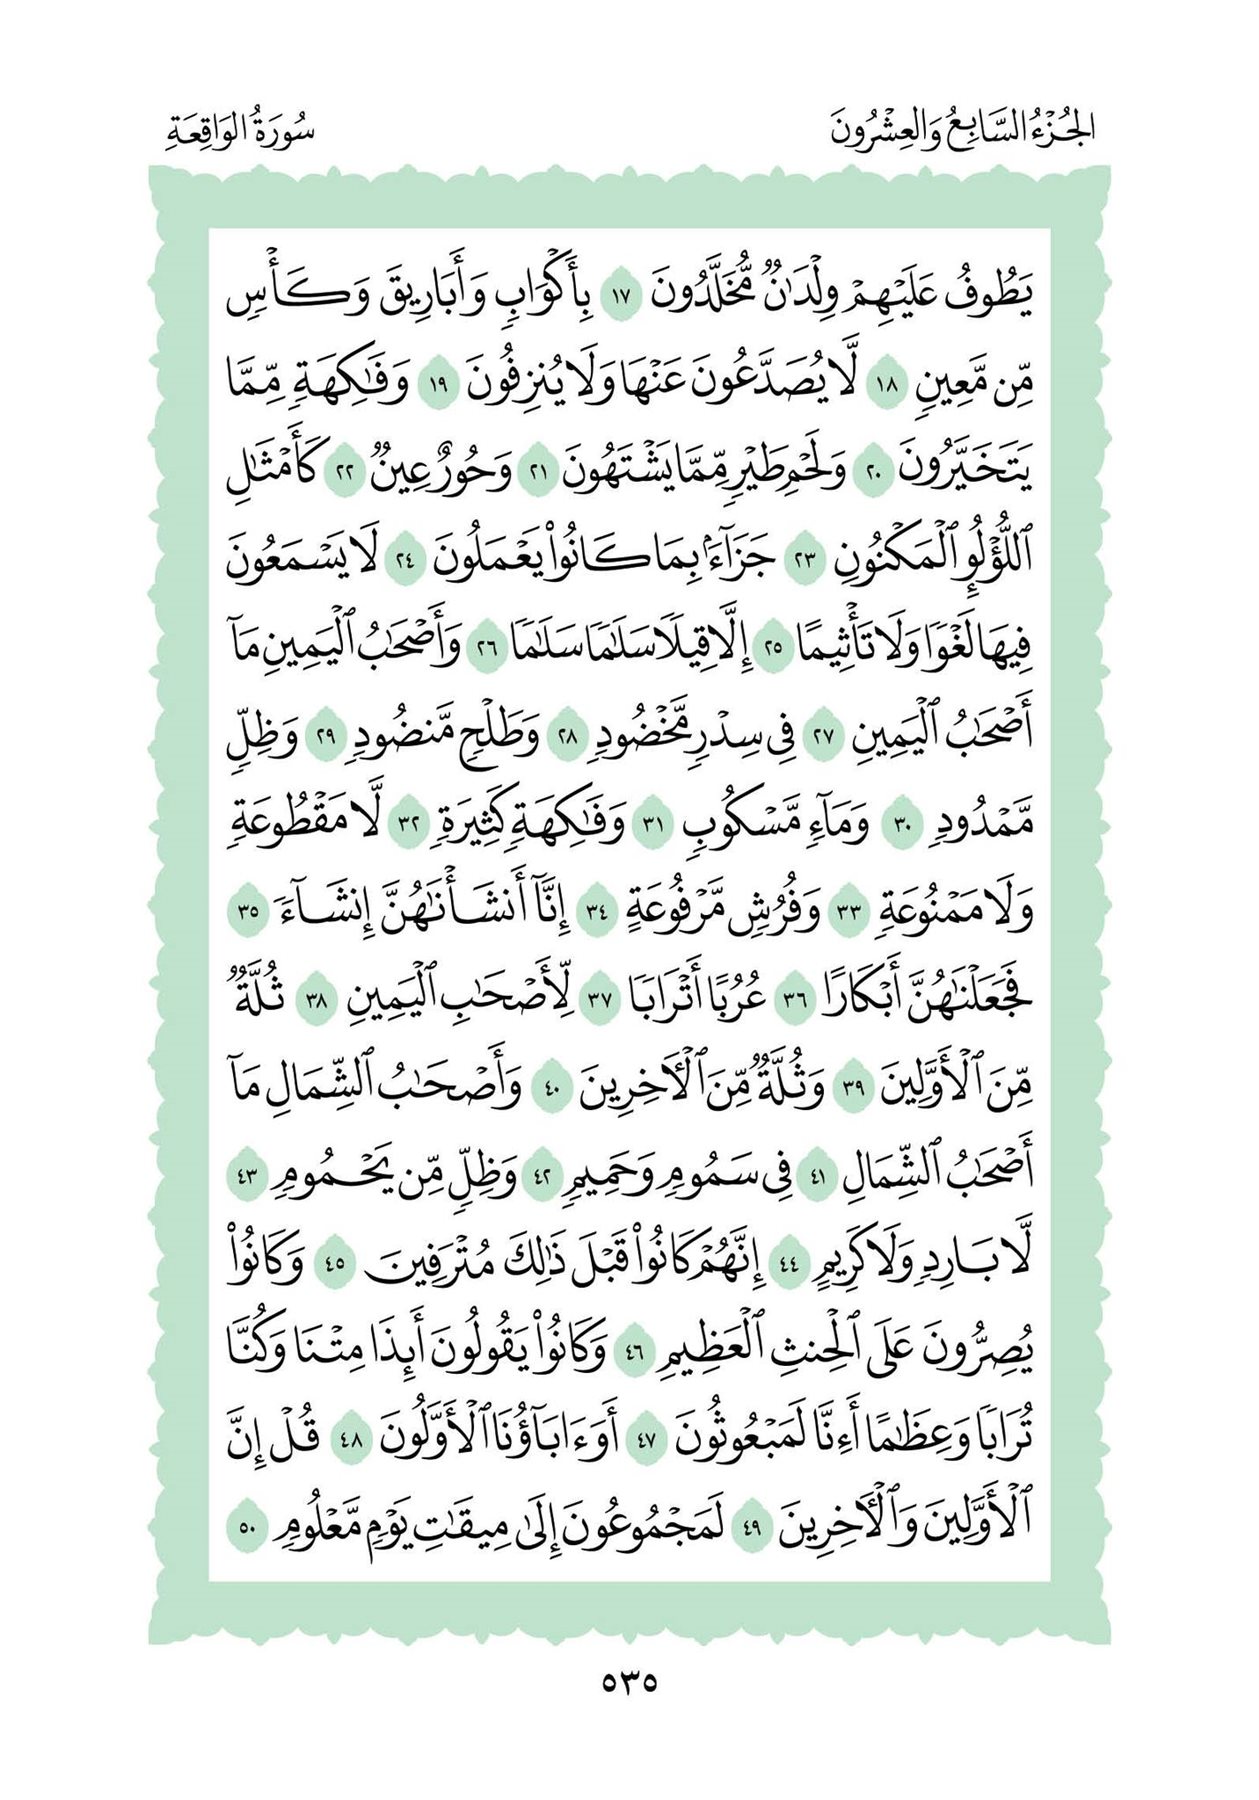 الجُزْءُ السَّابِعُ وَالعِشْرُونَ
سُورَةُ الوَاقِعَةِ
يَطُوفُ عَلَيْهِمْ وِلْدَٰنٌ مُّخَلَّدُونَ ١٧ بِأَكْوَابٍ وَأَبَارِيقَ وَكَأْسٍ
مِّن مَّعِينٍ ١٨ لَّا يُصَدَّعُونَ عَنْهَا وَلَا يُنزِفُونَ ١٩ وَفَٰكِهَةٍ مِّمَّا
يَتَخَيَّرُونَ ٢٠ وَلَحْمِ طَيْرٍ مِّمَّا يَشْتَهُونَ ٢١ وَحُورٌ عِينٌ ٢٢ كَأَمْثَٰلِ
ٱللُّؤْلُؤِ ٱلْمَكْنُونِ ٢٣ جَزَآءًۢ بِمَا كَانُوا۟ يَعْمَلُونَ ٢٤ لَا يَسْمَعُونَ
فِيهَا لَغْوًا وَلَا تَأْثِيمًا ٢٥ إِلَّا قِيلًا سَلَٰمًا سَلَٰمًا ٢٦ وَأَصْحَٰبُ ٱلْيَمِينِ مَآ
أَصْحَٰبُ ٱلْيَمِينِ ٢٧ فِى سِدْرٍ مَّخْضُودٍ ٢٨ وَطَلْحٍ مَّنضُودٍ ٢٩ وَظِلٍّ
مَّمْدُودٍ ٣٠ وَمَآءٍ مَّسْكُوبٍ ٣١ وَفَٰكِهَةٍ كَثِيرَةٍ ٣٢ لَّا مَقْطُوعَةٍ
وَلَا مَمْنُوعَةٍ ٣٣ وَفُرُشٍ مَّرْفُوعَةٍ ٣٤ إِنَّآ أَنشَأْنَٰهُنَّ إِنشَآءً ٣٥
فَجَعَلْنَٰهُنَّ أَبْكَارًا ٣٦ عُرُبًا أَتْرَابًا ٣٧ لِّأَصْحَٰبِ ٱلْيَمِينِ ٣٨ ثُلَّةٌ
مِّنَ ٱلْأَوَّلِينَ ٣٩ وَثُلَّةٌ مِّنَ ٱلْءَاخِرِينَ ٤٠ وَأَصْحَٰبُ ٱلشِّمَالِ مَآ
أَصْحَٰبُ ٱلشِّمَالِ ٤١ فِى سَمُومٍ وَحَمِيمٍ ٤٢ وَظِلٍّ مِّن يَحْمُومٍ ٤٣
لَّا بَارِدٍ وَلَا كَرِيمٍ ٤٤ إِنَّهُمْ كَانُوا۟ قَبْلَ ذَٰلِكَ مُتْرَفِينَ ٤٥ وَكَانُوا۟
يُصِرُّونَ عَلَى ٱلْحِنثِ ٱلْعَظِيمِ ٤٦ وَكَانُوا۟ يَقُولُونَ أَئِذَا مِتْنَا وَكُنَّا
تُرَابًا وَعِظَٰمًا أَءِنَّا لَمَبْعُوثُونَ ٤٧ أَوَءَابَآؤُنَا ٱلْأَوَّلُونَ ٤٨ قُلْ إِنَّ
ٱلْأَوَّلِينَ وَٱلْءَاخِرِينَ ٤٩ لَمَجْمُوعُونَ إِلَىٰ مِيقَٰتِ يَوْمٍ مَّعْلُومٍ ٥٠
٥٣٥